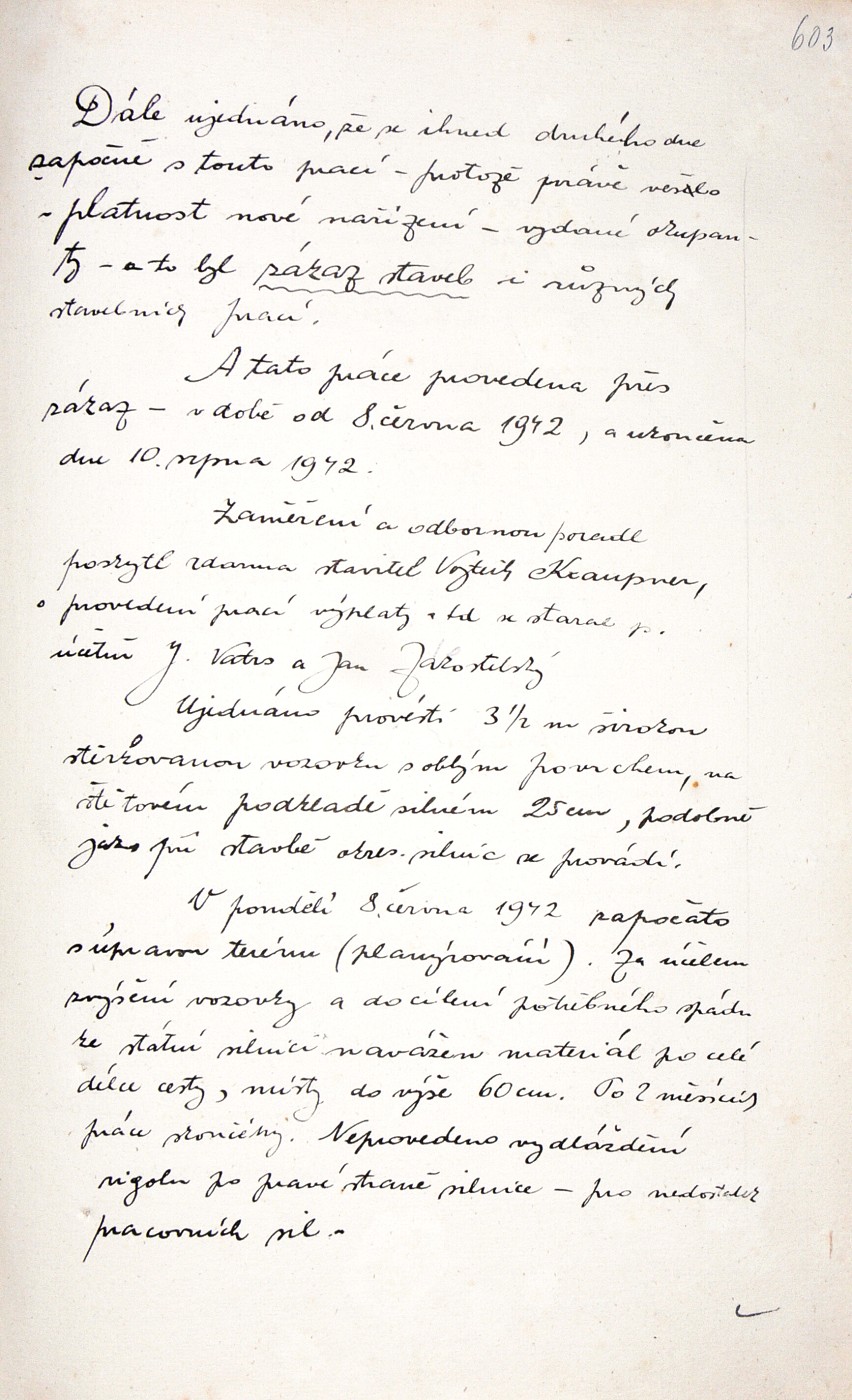 603
Dále ujednáno, že se ihned druhého dne
započne s touto prací – protože právě vešlo
v platnost nové nařízení – vydané okupan-
ty – a to byl zákaz staveb i různých
stavebních prací.
A tato práce provedena přes
zákaz – v době od 8. června 1942, a ukončena
dne 10. srpna 1942.
Zaměření a odbornou poradu
poskytl zdarma stavitel Vojtěch Kraupner,
o provedení prací výplaty atd se staral p.
účetní J. Vatrs a Jan Zákostelský
Ujednáno provésti 3 1/2 m širokou
štěrkovanou vozovku s oblým povrchem, na
štětovém podkladě silném 25 cm, podobně
jako při stavbě okres. silnic se provádí.
V pondělí 8. června 1942 započato
s úpravou terénu (planýrování). Za účelem
zvýšení vozovky a docílení potřebného spádu
ke státní silnici navážen materiál po celé
délce cesty, místy do výše 60 cm. Po 2 měsících
práce skončény. Neprovedeno vydláždění
rigolu po pravé straně silnice – pro nedostatek
pracovních sil. –